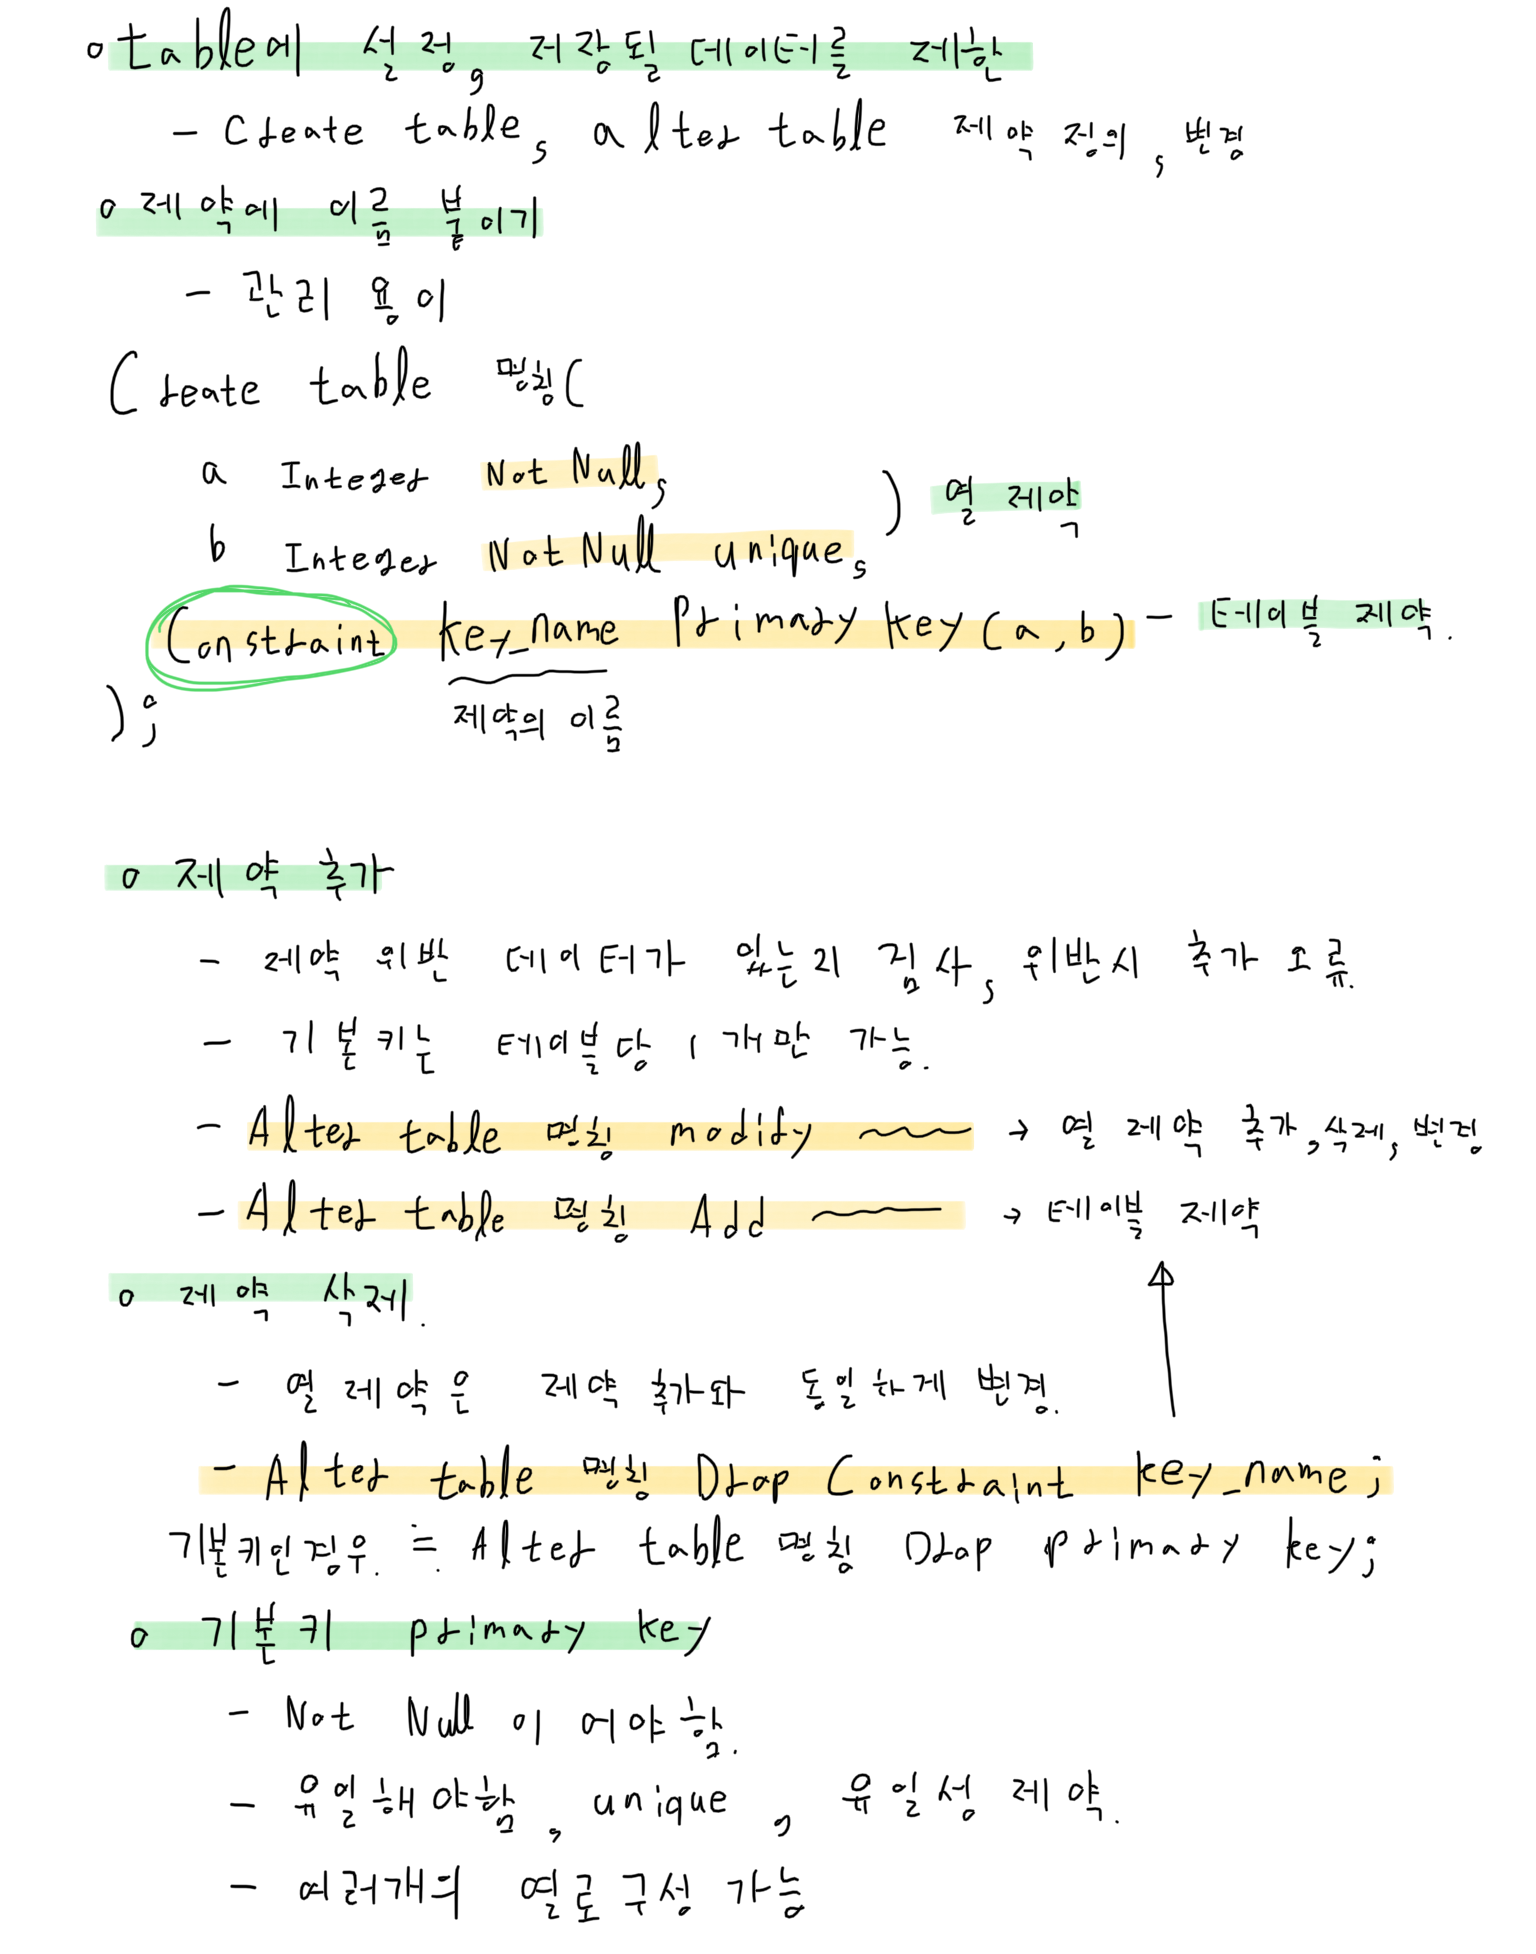 o table에 설정, 저장될 데이터를 제한
- Create table, alter table 제약 정의, 변경
o 제약에 이름 붙이기
- 관리 용이
Create table 명칭(
a Integer Not Null,
b Integer Not Null unique, ) 열 제약
Constraint key_name Primary key(a,b) - 테이블 제약.
); 제약의 이름
o 제약 추가
- 제약 위반 데이터가 있는지 검사, 위반시 추가 오류.
- 기본키는 테이블당 1개만 가능.
- Alter table 명칭 modify → 열 제약 추가, 삭제, 변경
- Alter table 명칭 Add → 테이블 제약
o 제약 삭제.
- 열 제약은 제약 추가와 동일하게 변경.
- Alter table 명칭 Drop Constraint key_name;
기본키인경우. ≒ Alter table 명칭 Drop primary key;
o 기본키 primary key
- Not Null 이어야함.
- 유일해야함, unique, 유일성 제약.
- 여러개의 열로 구성 가능